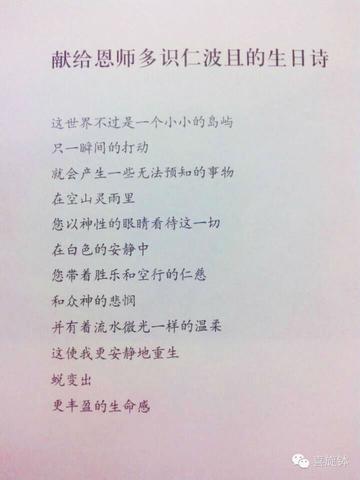 献给恩师多识仁波且的生日诗
这世界不过是一个小小的岛屿
只一瞬间的打动
就会产生一些无法预知的事物
在空山灵雨里
您以神性的眼睛看待这一切
在白色的安静中
您带着胜乐和空行的仁慈
和众神的悲悯
并有着流水微光一样的温柔
这使我更安静地重生
蜕变出
更丰盈的生命感
喜旋钵